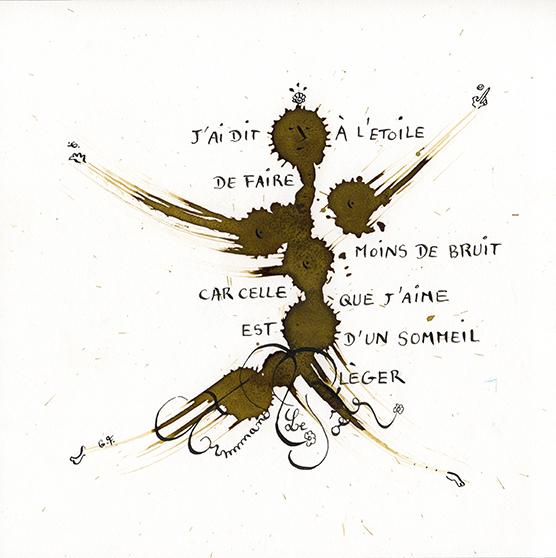 J'AI DIT À L'ETOILE
DE FAIRE
MOINS DE BRUIT
CAR CELLE QUE J'AIME
EST D'UN SOMMEIL
LÈGER
Le
G.G.